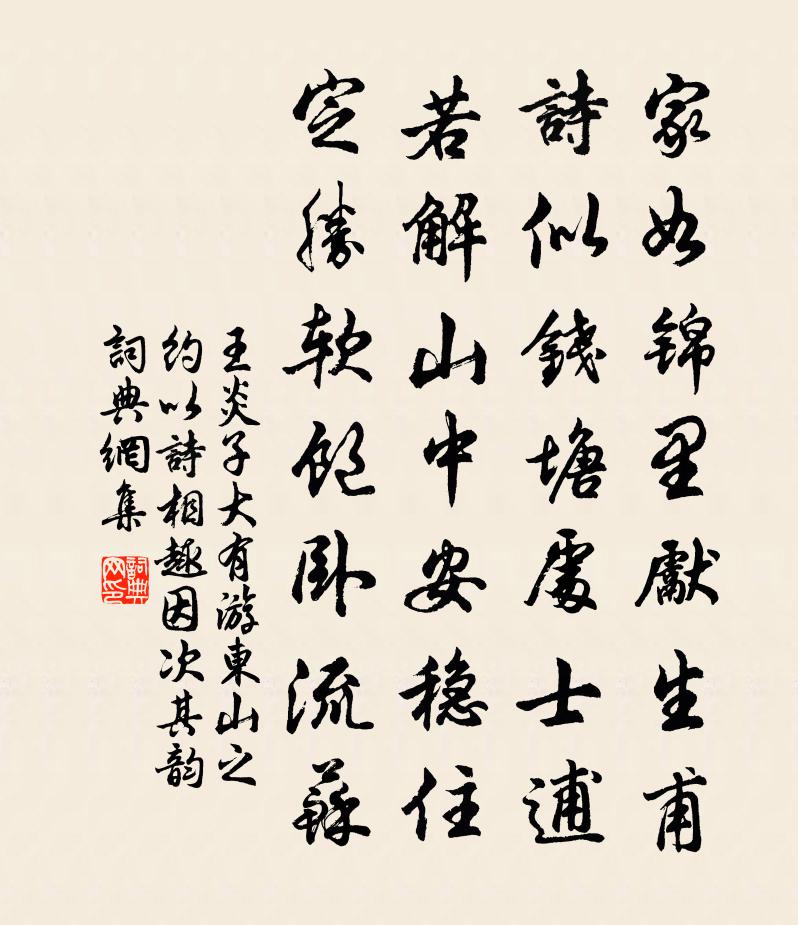 家如錦里獻生甫
詩似錢塘處士逋
若解山中安穩住
定勝軟飽臥流蘇
王炎子大有游東山之
約以詩相趣因次其韵
詞典網集
詞典网印